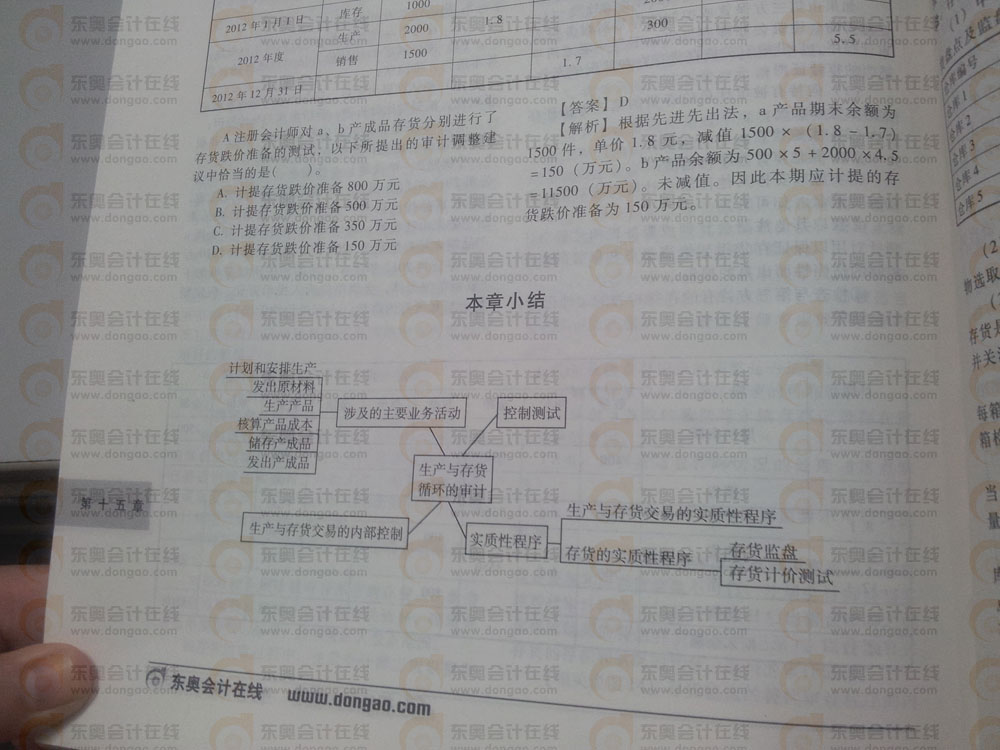 库存
1000
2012年1月1日
生产
2000
1.8
300
2012年度
销售
1500
1.7
5.5
2012年12月31日
A注册会计师对a、b产成品存货分别进行了
存货跌价准备的测试,以下所提出的审计调整建
议中恰当的是( )。
A. 计提存货跌价准备800万元
B. 计提存货跌价准备500万元
C. 计提存货跌价准备350万元
D. 计提存货跌价准备150万元
【答案】 D
【解析】根据先进先出法,a产品期末余额为
1500件,单价1.8元,减值1500×(1.8-1.7)
=150(万元)。b产品余额为500×5+2000×4.5
=11500(万元)。未减值。因此本期应计提的存
货跌价准备为150万元。
本章小结
计划和安排生产
发出原材料
生产产品
核算产品成本
储存产成品
发出产成品
涉及的主要业务活动
控制测试
生产与存货
循环的审计
生产与存货交易的内部控制
实质性程序
生产与存货交易的实质性程序
存货的实质性程序
存货监盘
存货计价测试
第十五章
东奥会计在线 www.dongao.com
(1)
盘点及监
仓库编号
仓库1
仓库2
仓库3
仓库4
仓库5
(2
物选取
存货
并关
每箱
箱
当
量